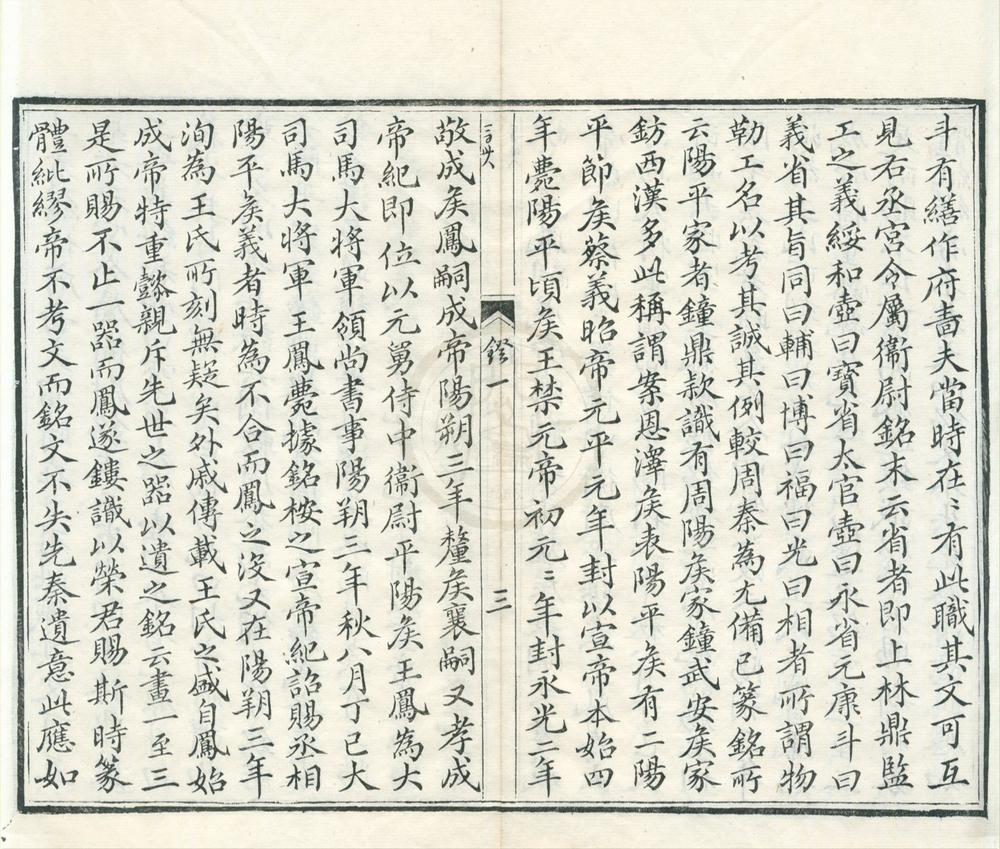 斗有繕作府嗇夫當時在〻有此職其文可互
見右丞宮令屬衞尉銘末云省者即上林鼎監
工之義綏和壺曰寶省太官壺曰永省元康斗曰
義省其旨同曰輔曰博曰福曰光曰相者所謂物
勒工名以考其誠其例較周秦為尤備已篆銘所
云陽平家者鐘鼎款識有周陽矦家鐘武安矦家
鈁西漢多此稱謂案恩澤矦表陽平矦有二陽
平節矦蔡義昭帝元平元年封以宣帝本始四
年薨陽平頃矦王禁元帝初元〻年封永光二年
鐙一
三
敬成矦鳳嗣成帝陽朔三年釐矦襄嗣又孝成
帝紀即位以元舅侍中衞尉平陽矦王鳳為大
司馬大將軍領尚書事陽朔三年秋八月丁巳大
司馬大將軍王鳳薨據銘桉之宣帝紀詔賜丞相
陽平矦義者時為不合而鳳之沒又在陽朔三年
洵為王氏所刻無疑矣外戚傳載王氏之盛自鳳始
成帝特重懿親斥先世之器以遺之銘云畫一至三
是所賜不止一器而鳳遂鏤識以榮君賜斯時篆
體紕繆帝不考文而銘文不失先秦遺意此應如